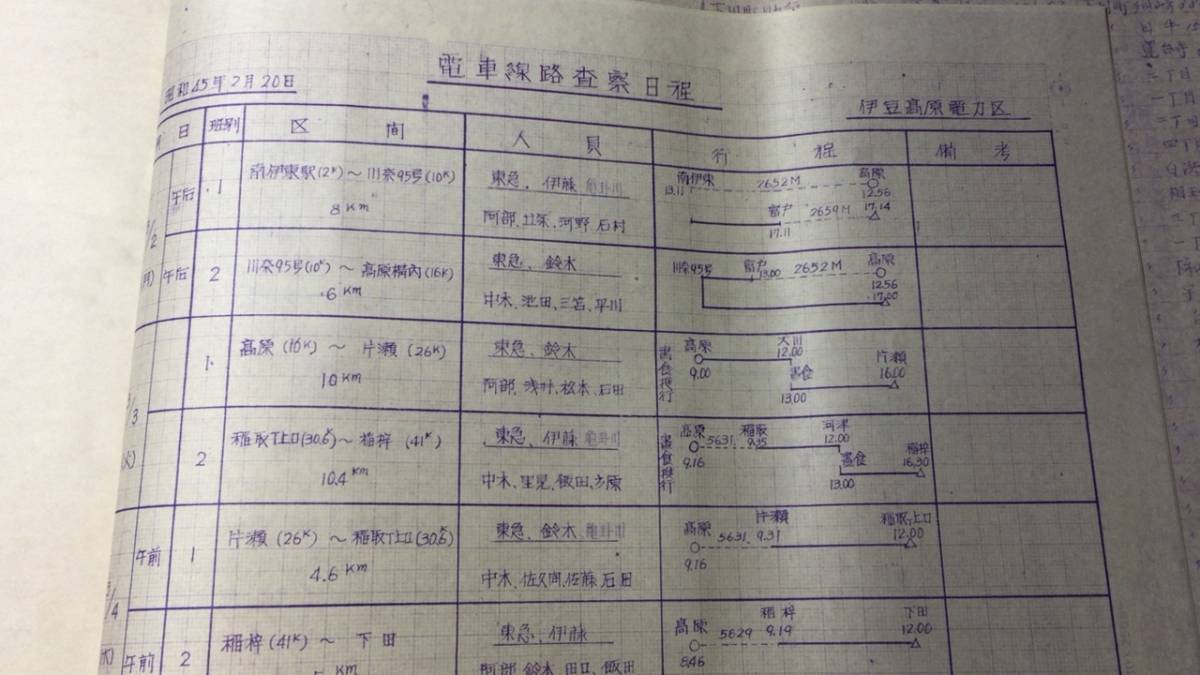 電車線路査察日程
昭和45年2月20日
伊豆高原電力区
日 班別 区間 人員 行程 備考
3/2
(月)
午后 1
南伊東駅(2K)～川奈95号(10K)
8 Km
東急、伊藤 亀卦川
阿部、河野 石村
南伊東 2652M 高原
13.11 12.56
富戸 2659M 17.14
17.11
午后 2
川奈95号(10K)～高原構内(16K)
6 Km
東急、鈴木
中木、池田、三筈、平川
川奈95号 富戸 13.00 2652M 高原
12.56
17.00
3/3
(火)
1
高原(16K)～片瀬(26K)
10 Km
東急、鈴木
阿部、浅叶、松本、石田
昼食携行
高原 大川 片瀬
9.00 12.00 昼食 16.00
13.00
2
稲取下上口(30.6K)～稲梓(41K)
10.4 Km
東急、伊藤 亀卦川
中木、里見、飯田、
昼食携行
高原 5631 稲取 河津 稲梓
9.16 9.35 12.00 昼食 16.30
13.00
3/4
(水)
午前 1
片瀬(26K)～稲取下上口(30.6K)
4.6 Km
東急、鈴木 亀卦川
中木、佐久間、佐藤 石田
高原 5631 片瀬 稲取下上口
9.16 9.31 12.00
午前 2
稲梓(41K)～下田
Km
東急、伊藤
阿部 鈴木 田口、飯田
高原 5629 稲梓 下田
8.46 9.19 12.00